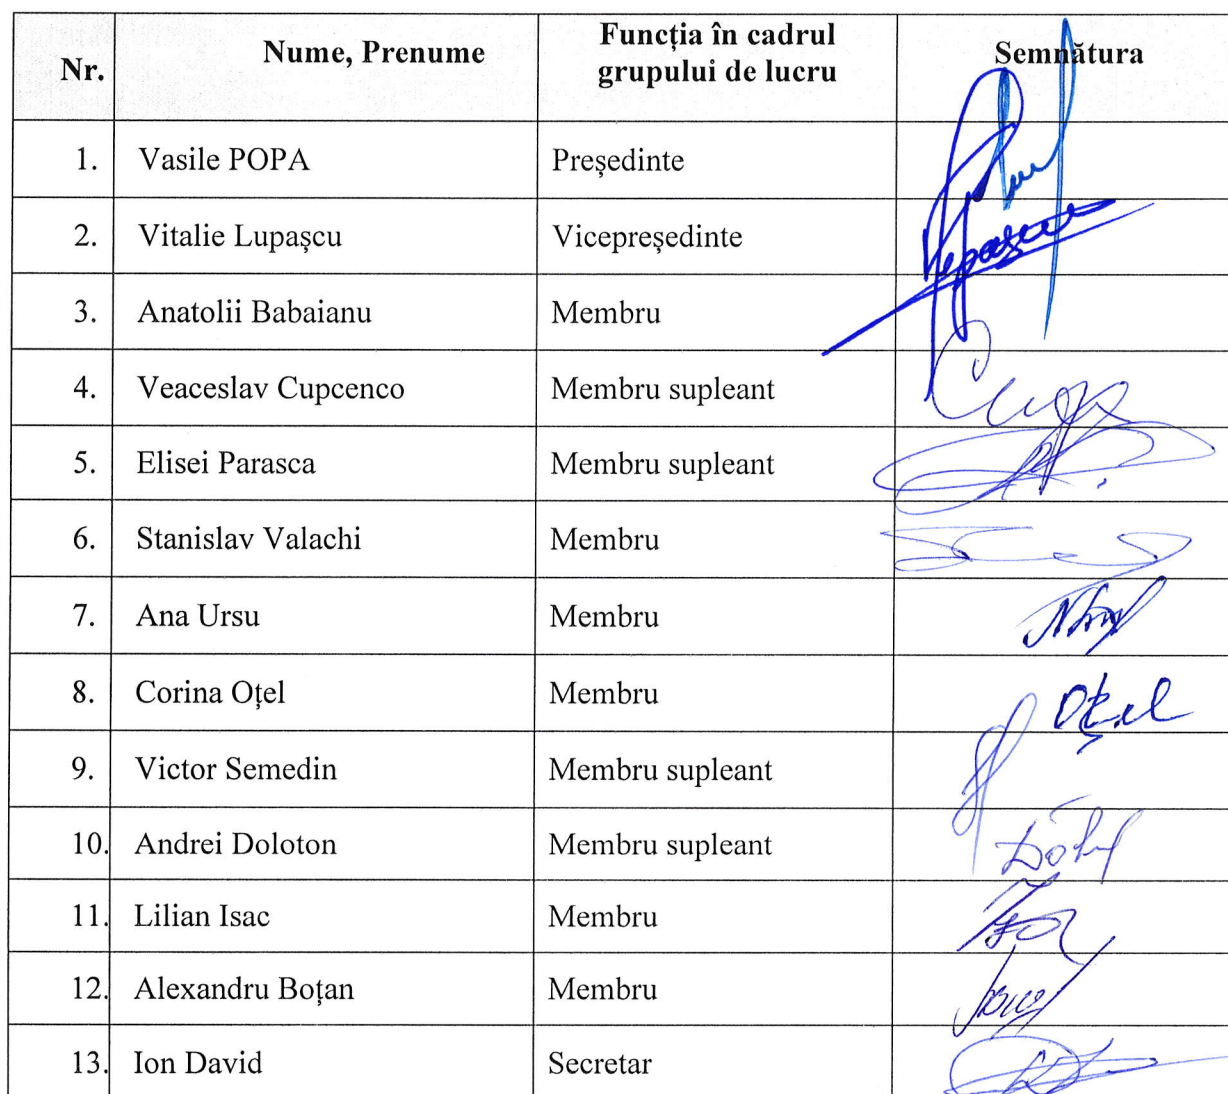 Nr.
Nume, Prenume
Funcția în cadrul
grupului de lucru
Semnătura
1. Vasile POPA Președinte
2. Vitalie Lupașcu Vicepreședinte
3. Anatolii Babaianu Membru
4. Veaceslav Cupcenco Membru supleant
5. Elisei Parasca Membru supleant
6. Stanislav Valachi Membru
7. Ana Ursu Membru
8. Corina Oțel Membru Oțel
9. Victor Semedin Membru supleant
10. Andrei Doloton Membru supleant
11. Lilian Isac Membru
12. Alexandru Boțan Membru
13. Ion David Secretar